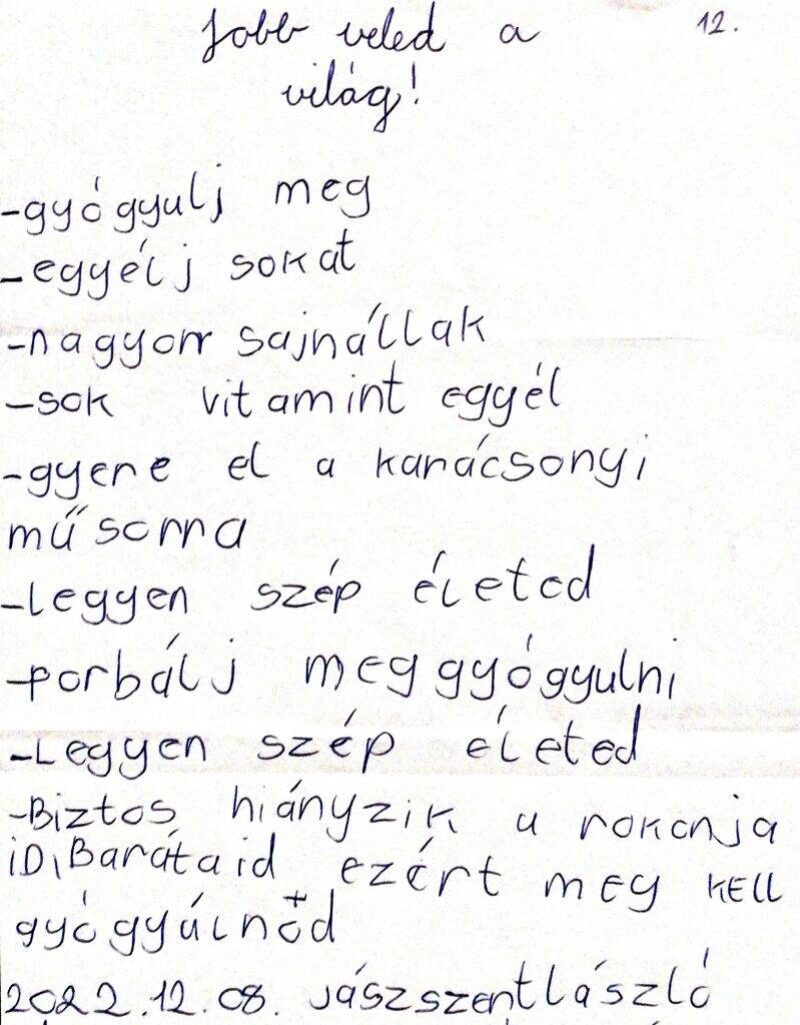 Jobb veled a 12.
világ!
-gyógyulj meg
-egyélj sokat
-nagyorr sajnállak
-sok vitamint egyél
-gyere el a karácsonyi
műsorra
-legyen szép életed
-porbálj meg gyógyulni
-Legyen szép életed
-Biztos hiányzik a rokonja
iD, Barátaid ezért meg kell
gyógyúlnöd
2022.12.08. Jászszentlászló